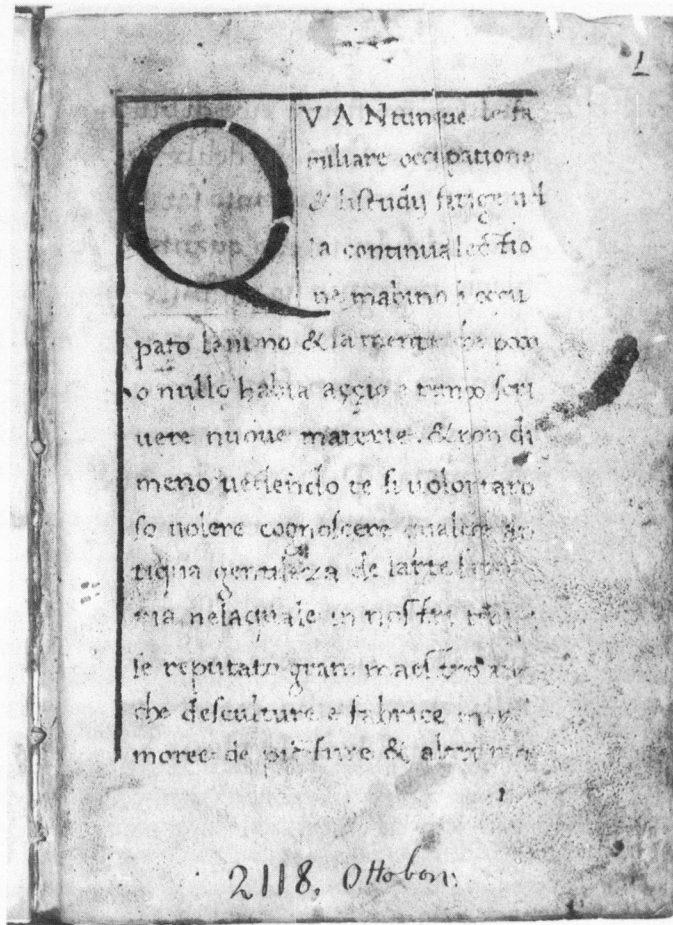 1
QVANtunque le fa
miliare occupatione
& li studij
la continua lectio
ne
pato lanimo & la mente
o nullo habia aggio e tempo scri
uere nuoue materie. & non di
meno uedendo te si volontaro
so uolere cognoscere qualche an
tiqua gentileza de larte
ria nelaquale in nostri
se reputato gran maestro
che desculture e fabrice
moree de picture &
2118. Ottobon.